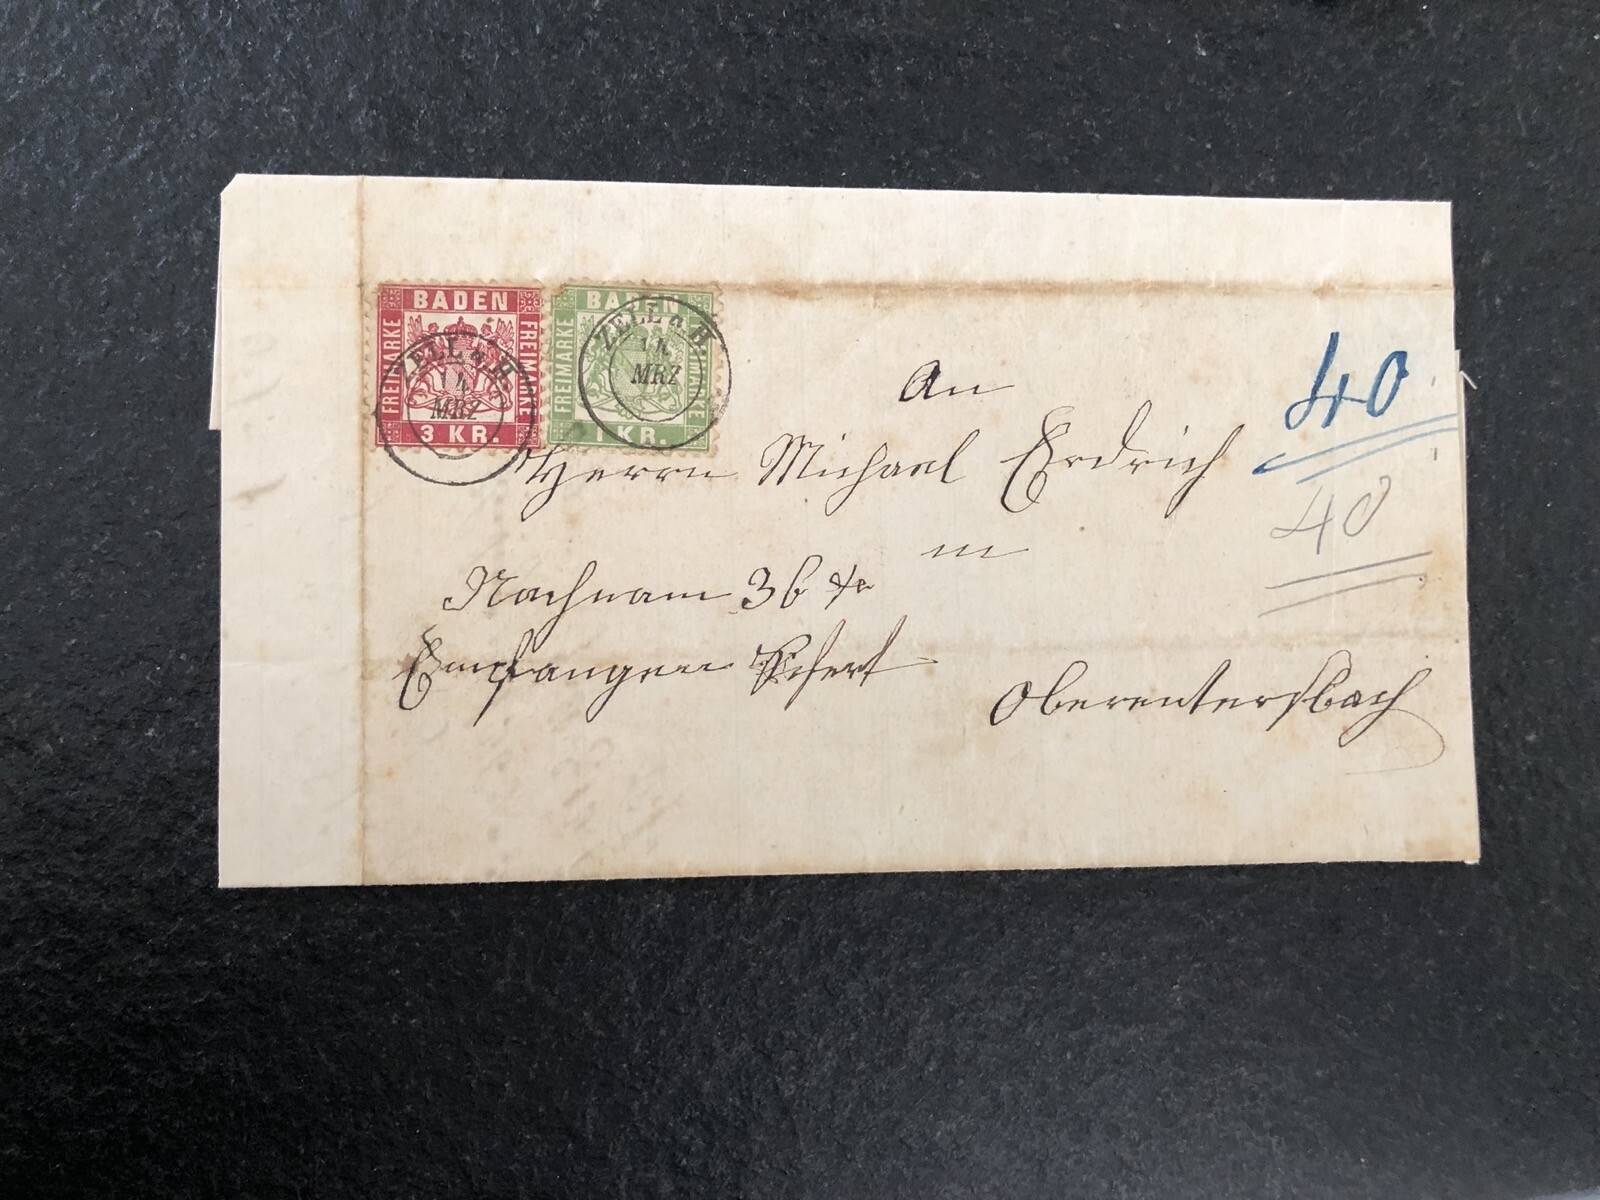 BADEN
FREIMARKE
FREIMARKE
3 KR.
ZELL a. H.
14
MRZ
BADEN
FREIMARKE
FREIMARKE
1 KR.
ZELL a. H.
14
MRZ
An
Herrn Michael Erdrich
in
Nachnam 36 xr
Empfangen
Oberentersbach
40
40